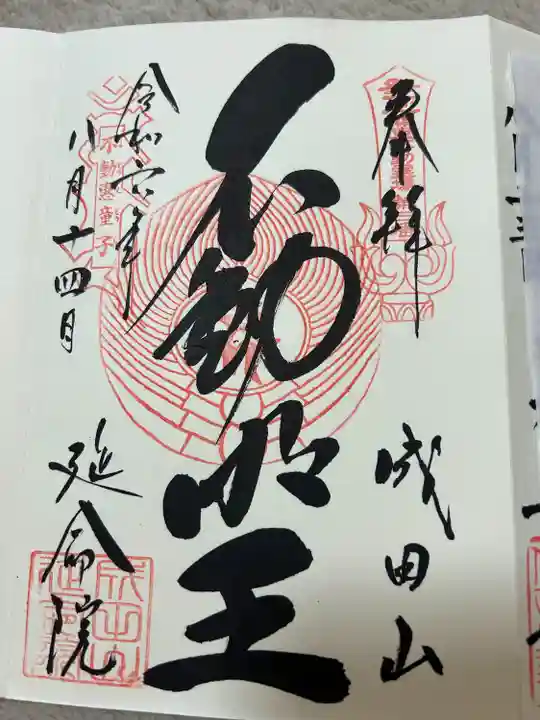 奉拝
成田山
不動明王
令和六年
八月十四日
延命院
不動恵童子